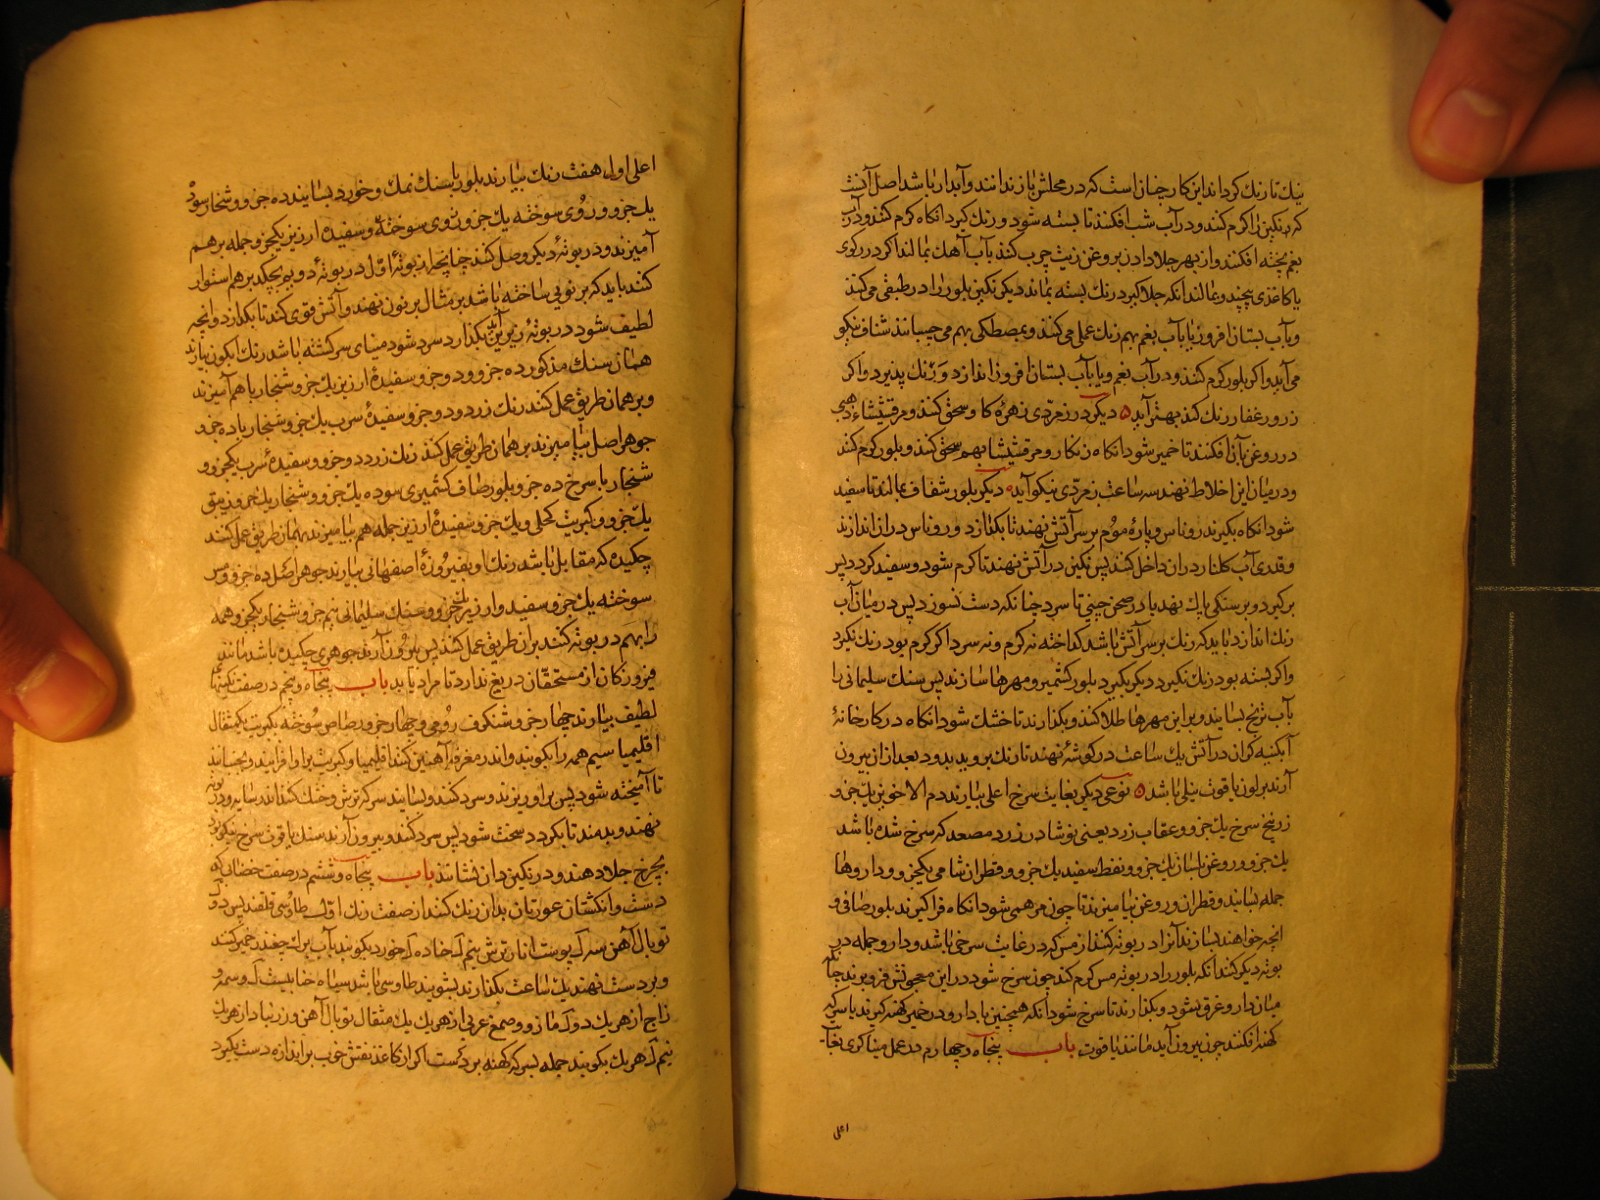 نیك تا رنك کرداند این کار چنان است که در مجلش باز ندانند و آبدار باشد اصل آنست
که بر نکین را کرم کنند و در آب شب افکنند تا بسته شود و رنك کیرد انکاه کرم کنند و در آب
بغم پخته افکنند و از بهر جلا دادن بروغن زیت چرب کنند بآب آهك بمالند اکر در رکوی
یا کاغذی پیچند و بمالند انکه جلا کیرد رنك بسته بماند دیکر نکین بلور را در طبقی می کنند
و بآب بستان افروز یا بآب بغم بهم رنك عمل می کنند و بمصطکی بهم می چسبانند شفاف نیکو
می آید و اکر بلور کرم کنند و در آب بغم و یا بآب بستان افروز اندازد و رنك پذیرد و اکر
زرور غفار رنك کند بهتر آید ه دیکر در زمرّدی زهرهٔ کاو سحق کنند و مرقشیشاء ذهبی
در روغن بآن افکنند تا خمیر شود انکاه زنکار و مرقشیشا بهم سحق کنند و بلور کرم کنند
و در میان این اخلاط نهند سه ساعت زمرّدی نیکو آید ه دیکر بلور شفاف بمالند تا سفید
شود انکاه بکیرند روناس و پارهٔ موم بر سر آتش نهند تا بکدازد و روناس در ان اندازند
و قدری آب کلنار در ان داخل کنند پس نکین در آتش نهند تا کرم شود و سفید کردد پس
برکیرد و بر سنکی پاك نهد یا در صحن چینی تا سرد چنانکه دست نسوزد پس در میان آب
رنك اندازد باید که رنك بر سر آتش باشد کداخته نه کرم و نه سرد اکر کرم بود رنك نکیرد
و اکر بسته بود رنك نکیرد دیکر بکیرد بلور کشمیر و مهرها سازند پس سنك سلیمانی را
بآب ترنج بسایند و بر این مهرها طلا کنند و بکذارند تا خشك شود انکاه در کارخانهٔ
آبکینه کران در آتش یك ساعت در کوشهٔ نهند تا رنك بر وید بدود بعد از ان بیرون
آرند بر لون یاقوت نیلی باشد ه نوعی دیکر بغایت سرخ اعلی بیارند دم الاخوین یك جزو
زرنیخ سرخ یك جزو و عقاب زرد یعنی نوشادر زرد مصعد که سرخ شده باشد
یك جزو و روغن بلسان یك جزو و نفط سفید یك جزو و قطران شامی یکجزو و داروها
جمله بسایند و قطران و روغن بیامیزند تا چون مرهمی شود انکاه فراکیرند بلور صافی و
انچه خواهند بسازند آنرا در بوته کنند از مس که در غایت سرخی باشد و دارو جمله در
بوته دیکر کنند انکه بلور را در بوته مس کرم کنند چون سرخ شود در این معجونش فرو برند چنانکه
میان دارو غرق شود و بکذارند تا سرخ شود انکه همچنین با دارو در خمیر کهنه کیرند یا سرکه
کهنه افکنند چون بیرون آید مانند یاقوت باب پنجاه و چهارم در عمل میناکری بغایت
اعلی
اعلی اول هفت رنك بیارند بلور یا سنك نمك و خورد بسایند ده جزو و شنجار سوده
یك جزو و روی سوخته یك جزو و روی سوخته و سفیدهٔ ارزیز یکجزو جمله بر هم
آمیزند و در بوتهٔ دیکر وصل کنند چنانچه از بوتهٔ اوّل در بوتهٔ دویم بچکد بر هم استوار
کنند باید که بر نویی ساخته باشد بر مثال برنون نهند و آتش قوی کنند تا بکدازد و انچه
لطیف شود در بوتهٔ زیرین بکذارد سرد شود مینای سرکشته باشد رنك ابکون بیارند
همان سنك مذکور ده جزو و دو جزو سفیدهٔ ارزیز یك جزو شنجار باهم آمیزند
و بر همان طریق عمل کنند رنك زرد دو جزو سفیدهٔ سرب یك جزو شنجار با ده جزو
جوهر اصل بیامیزند بر همان طریق عمل کنند رنك زرد دو جزو و سفیدهٔ سرب یکجزو و
شنجار با سرخ ده جزو بلور صاف کشمیری سوده یك جزو و شنجار یك جزو زیبق
یك جزو و کبریت کحلی و یك جزو سفیدهٔ ارزیز جمله بهم بیامیزند بهمان طریق عمل کنند
چکیده که مقابل باشد رنك او بفیروزهٔ اصفهانی بیارند جوهر اصل ده جزو و مس
سوخته یك جزو سفید و ارزیز یك جزو و سنك سلیمانی نیم جزو شنجار یکجزو همه
را بهم در بوته کنند بر ان طریق عمل کنند پس بیرون آرند جوهری چکیده باشد مانند
فیروزکان از مستحقان دریغ ندارد تا مراد یابد باب پنجاه و پنجم در صفت نکینها
لطیف بیارند چهار جزو شنکرف رومی و چهار جزو رصاص سوخته بکبریت یکمثقال
اقلیمیا سیم همه را بکوبند و اندر مغرفهٔ آهنین کنند اقلیمیا و کبریت بر او افزایند و بجنبانند
تا آمیخته شود پس بر او ریزند و سرد کنند و بسایند سرکه ترش و خشك کنند اندر سایه و در بوته
نهند و بدمند تا بکردد سخت شود پس سرد کنند و بیرون آرند سنك یاقوت سرخ نیکو بود
بچرخ جلا دهند و در نکین دان نشانند باب پنجاه و ششم در صفت خضابی که
دست و انکشتان عورتان بدان رنك کنند از صفت رنك اول طاوسی قلقند پس دو
توبال آهن سه آ پوست انار ترش نیم آ حنا ده آ خورد بکوبند بآب برك چغندر خمیر کنند
و بر دست نهند یك ساعت بکذارند بشویند طاوسی باشد سیاه حنا بیست آ وسمه و
زاج از هر یك دو آ مازو و صمغ عربی از هر یك یك مثقال توبال آهن و زرنباد از هر یك
نیم آ هر یك بکوبند جمله بسرکه کهنه بر دست اکر از کاغذ نقش خوب بر اندازه دست بکیرد